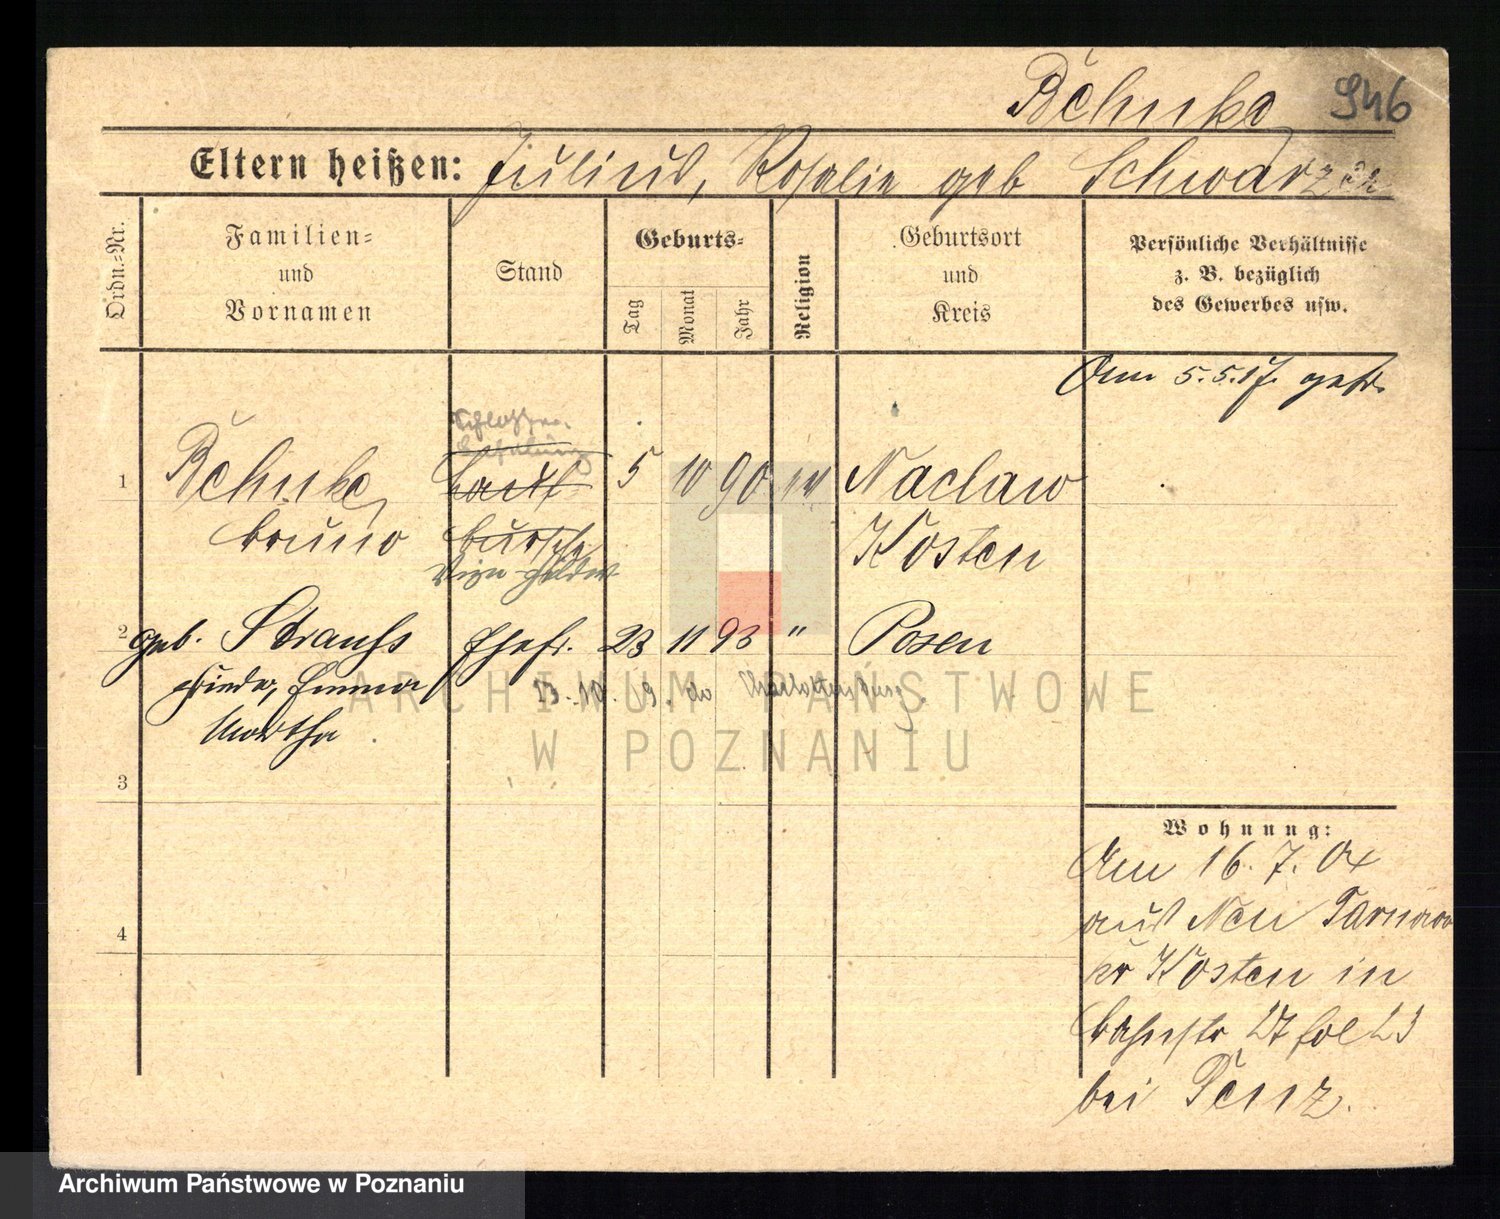 Behnke 946
Eltern heißen: Julius, Rosalie geb Schwarz
Ordn.-Nr.
Familien-
und
Vornamen
Stand
Geburts-
Tag
Monat
Jahr
Religion
Geburtsort
und
Kreis
Persönliche Verhältnisse
z. B. bezüglich
des Gewerbes usw.
5.5.17.
1
Behnke,
Bruno
Schlosser
Lauf
bursche
5 10 90
Naclaw
Kosten
2 geb. Strauss Ehefr. 23 11 93 " Posen
Frieda, Emma
Martha
23.10.19. Charlottenburg.
3
4
Wohnung:
Am 16. 7. 04
aus Neu Tarnowo
kr Kosten in
Bahnstr 27
bei Penz.
ARCHIWUM PAŃSTWOWE
W POZNANIU
Archiwum Państwowe w Poznaniu